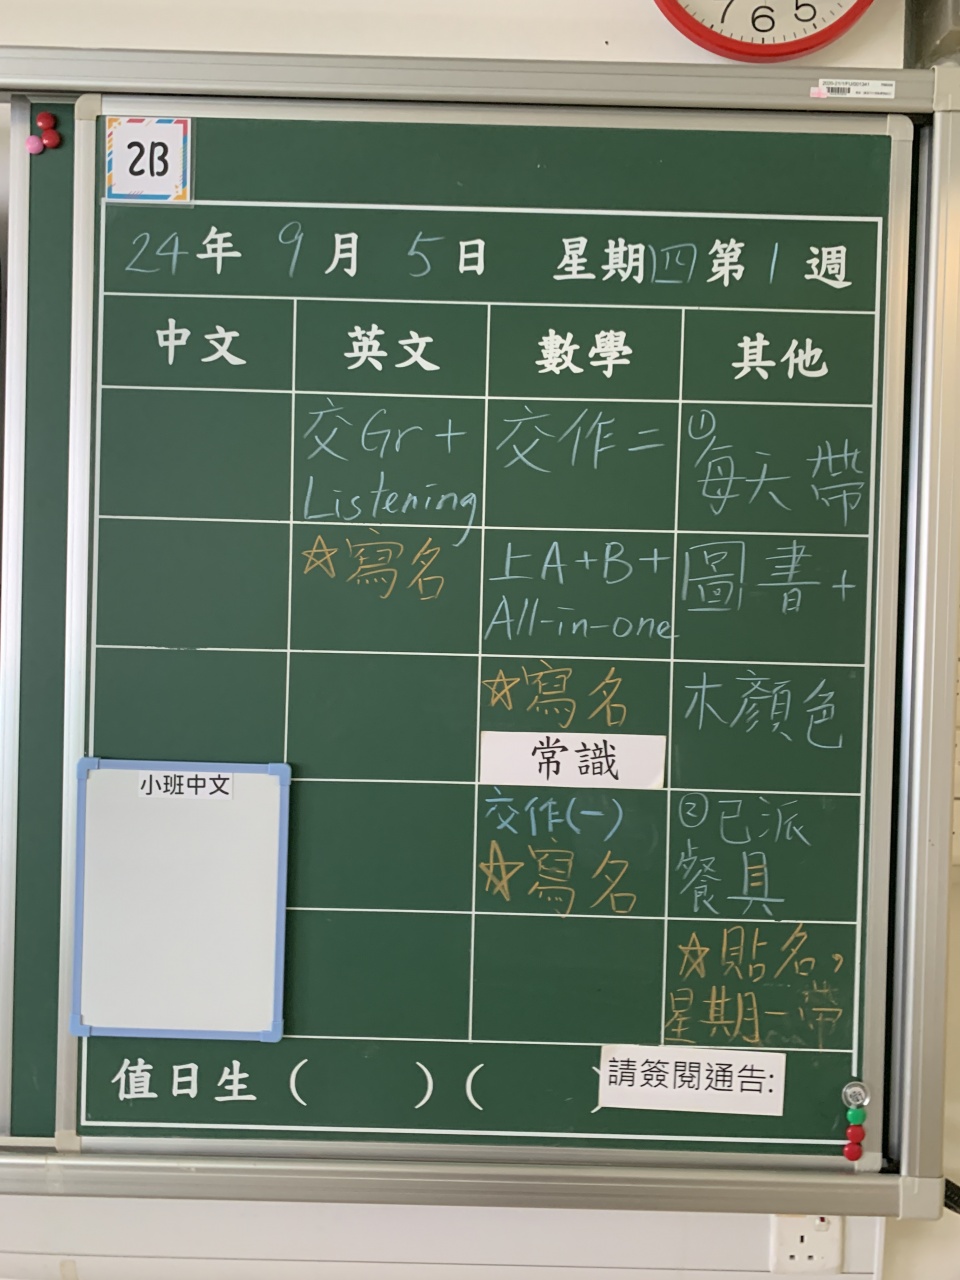 7 6 5
2B
24年 9月 5日 星期四第1週
中文 英文 數學 其他
交Gr+
Listening
☆寫名
交作二
上A+B+
All-in-one
☆寫名
常識
交作(一)
☆寫名
①
每天帶
圖書+
木顏色
②已派
餐具
☆貼名，
星期一帶
小班中文
值日生( )( )
請簽閱通告: